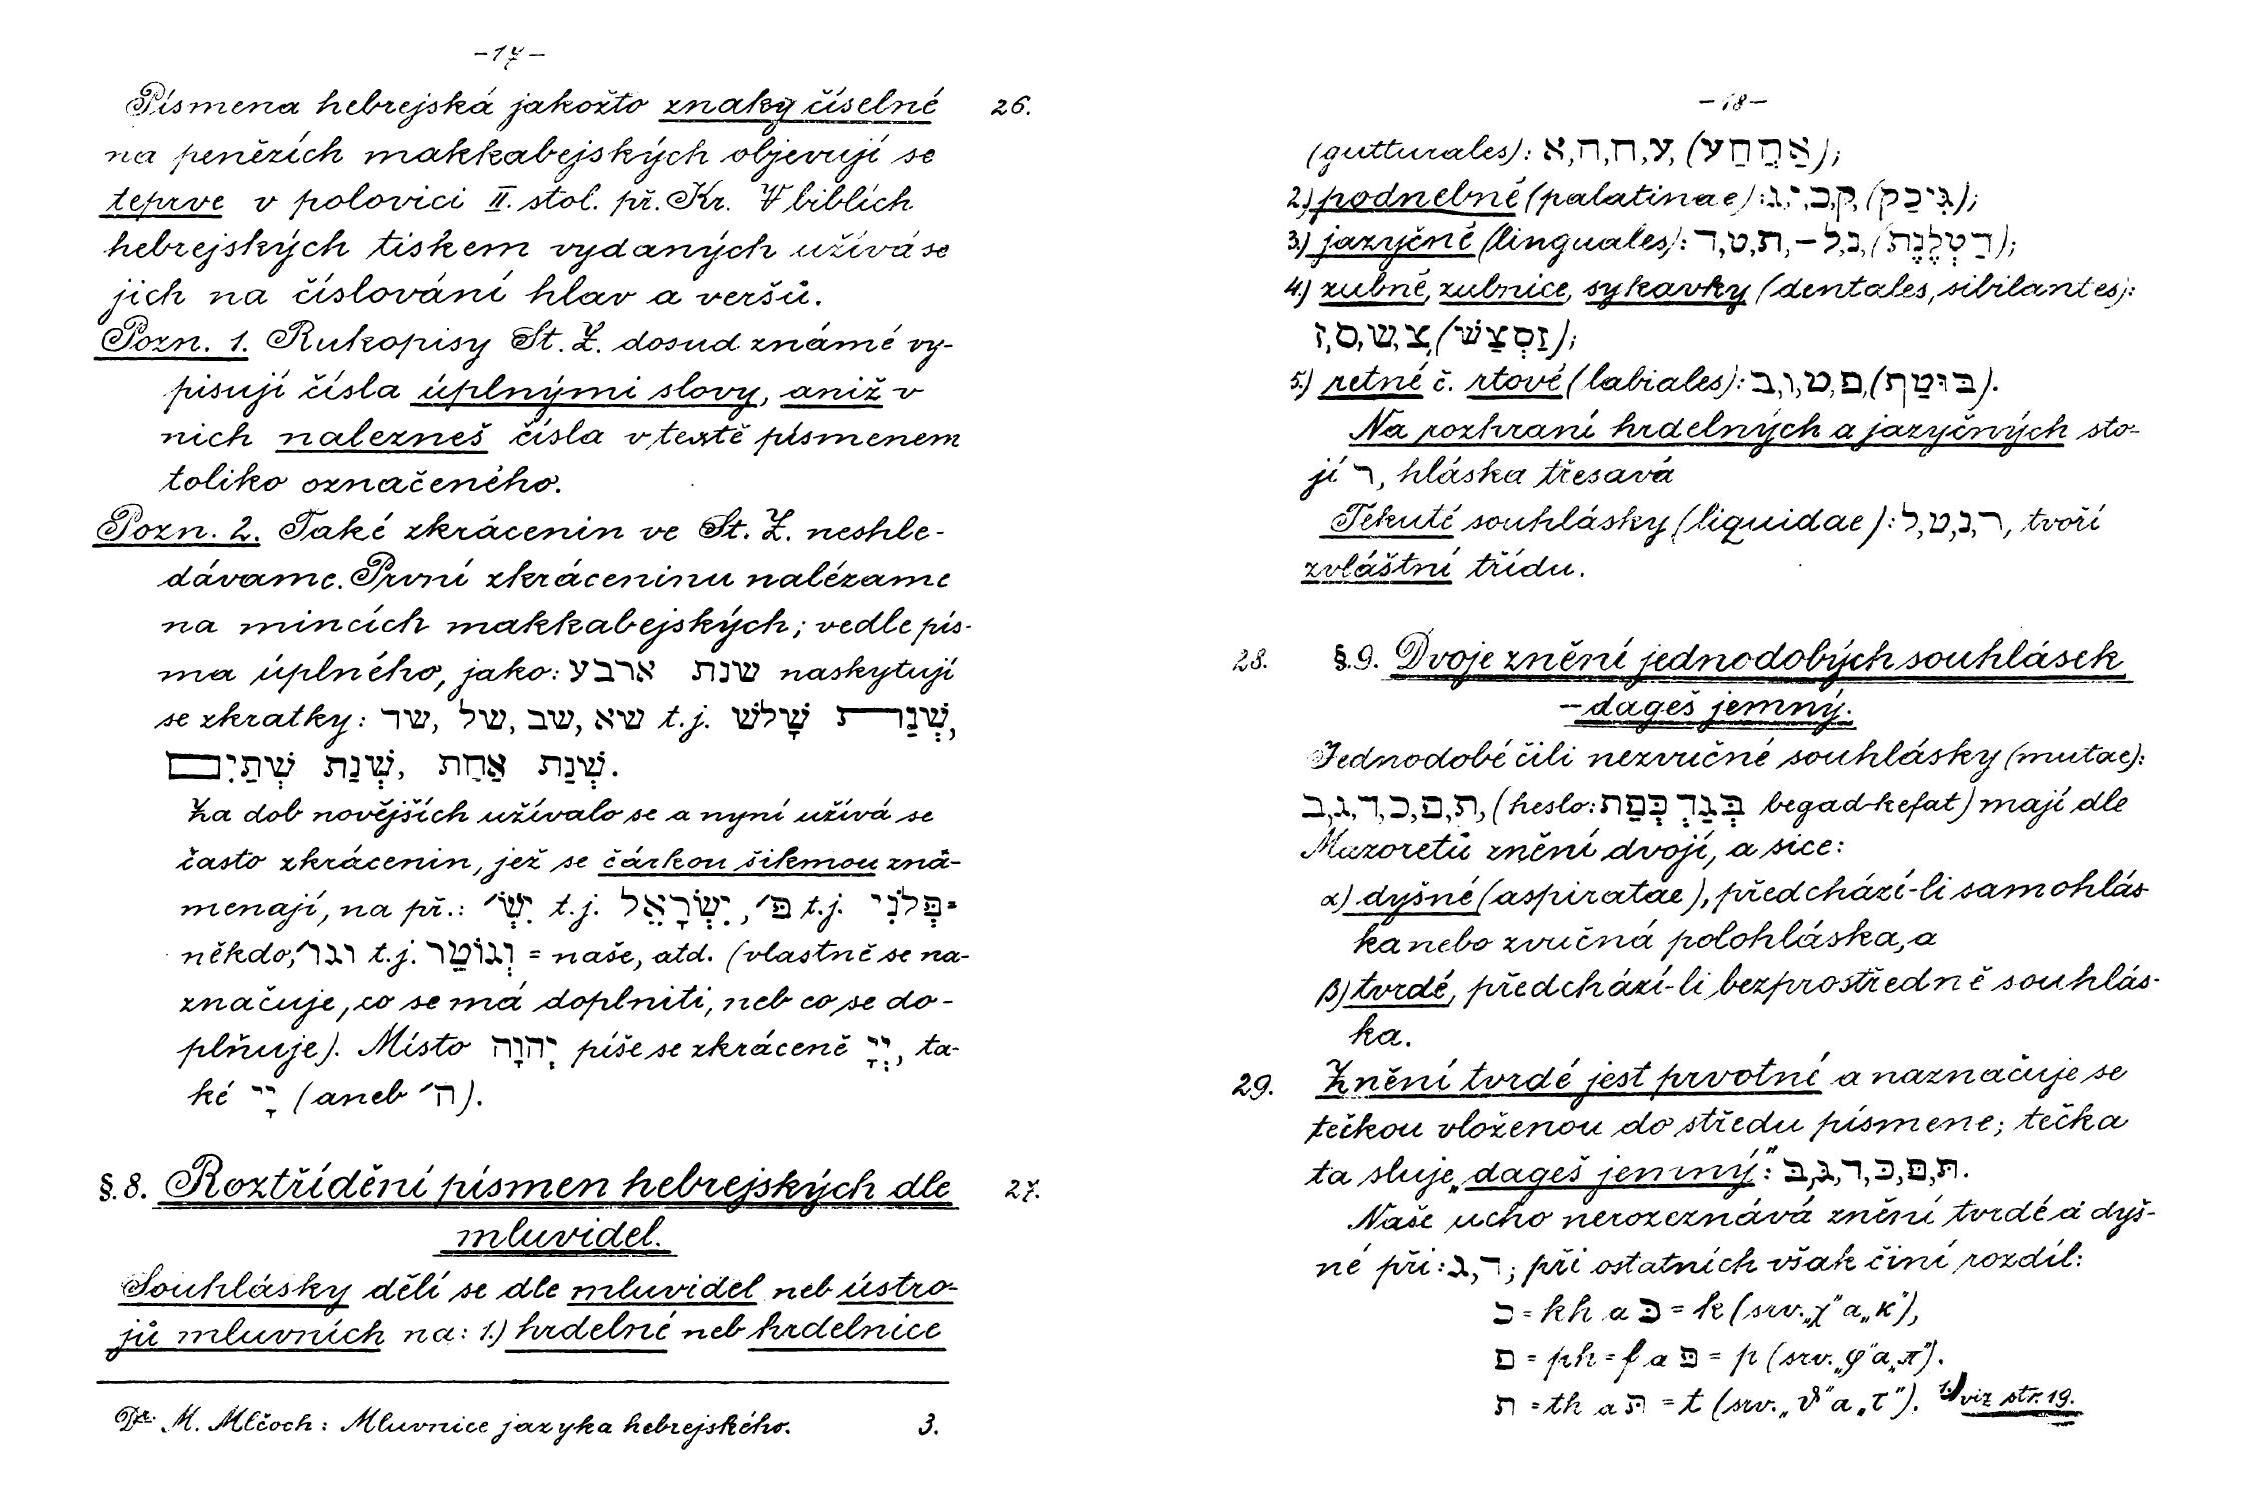 -17-
Písmena hebrejská jakožto znaky číselné 26.
na penězích makkabejských objevují se
teprve v polovici II. stol. př. Kr. V biblích
hebrejských tiskem vydaných užívá se
jich na číslování hlav a veršů.
Pozn. 1. Rukopisy St. Z. dosud známé vy-
pisují čísla úplnými slovy, aniž v
nich nalezneš čísla v textě písmenem
toliko označeného.
Pozn. 2. Také zkrácenin ve St. Z. neshle-
dáváme. První zkráceninu nalézáme
na mincích makkabejských; vedle pís-
ma úplného, jako: שנת ארבע naskytují
se zkratky: שא, שב, של, שד t.j. שְׁנַת שָׁלשׁ,
שְׁנַת אַחַת, שְׁנַת שְׁתַּיִם.
Za dob novějších užívalo se a nyní užívá se
často zkrácenin, jež se čárkou šikmou zna-
menají, na př.: יִשְׂ׳ t.j. יִשְׂרָאֵל, פ׳ t.j. פְּלֹנִי =
někdo, וגו׳ t.j. וְגוֹמַר = naše, atd. (vlastně se na-
značuje, co se má doplniti, neb co se do-
plňuje). Místo יְהוָה píše se zkráceně יְיָ, ta-
ké יָי (aneb ה׳).
§.8. Roztřídění písmen hebrejských dle 27.
mluvidel.
Souhlásky dělí se dle mluvidel neb ústro-
jů mluvních na: 1.) hrdelné neb hrdelnice
Dr. M. Mlčoch: Mluvnice jazyka hebrejského. 3.
-18-
(gutturales): א, ה, ח, ע, (אַהֲחַע);
2.) podnebné (palatinae): ג, י, כ, ק, (גִּיכַק);
3.) jazyčné (linguales): ד, ט, ת, – ל, נ, (דַּטְלֶנֶת);
4.) zubné, zubnice, sykavky (dentales, sibilantes):
ז, ס, ש, צ, (זַסְצַשׁ);
5.) retné č. rtové (labiales): ב, ו, מ, פ, (בּוּמַף).
Na rozhraní hrdelných a jazyčných sto-
jí ר, hláska třesavá
Tekuté souhlásky (liquidae): ל, מ, נ, ר, tvoří
zvláštní třídu.
28. §.9. Dvoje znění jednodobých souhlásek
– dageš jemný.
Jednodobé čili nezvučné souhlásky (mutae):
ב, ג, ד, כ, פ, ת, (heslo: בְּגַדְ כְּפַת begad-kefat) mají dle
Mazoretů znění dvojí, a sice:
α) dyšné (aspiratae), předchází-li samohlás
ka nebo zvučná polohláska, a
β) tvrdé, předchází-li bezprostředně souhlás-
ka.
29. Znění tvrdé jest prvotní a naznačuje se
tečkou vloženou do středu písmene; tečka
ta sluje „dageš jemný": בּ, גּ, דּ, כּ, פּ, תּ.
Naše ucho nerozeznává znění tvrdé a dyš-
né při: ג, ד; při ostatních však činí rozdíl:
כ = kh a כּ = k (srv. „χ" a „κ"),
פ = ph = f a פּ = p (srv. „φ" a „π").
ת = th a תּ = t (srv. „ϑ" a „τ"). 1.) viz str. 19.